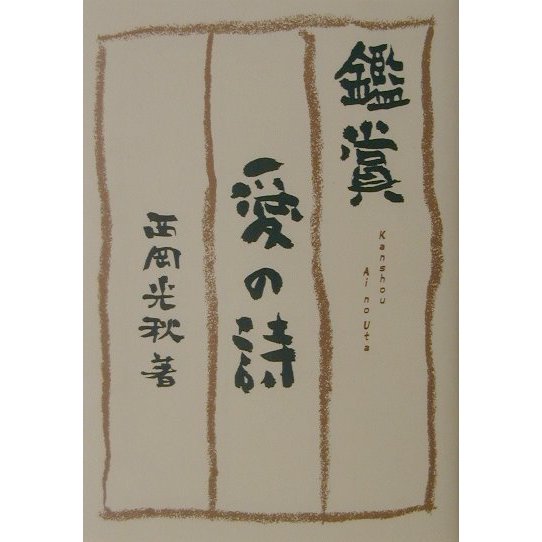 鑑賞
Kanshou
Ai no Uta
愛の詩
西岡光秋著